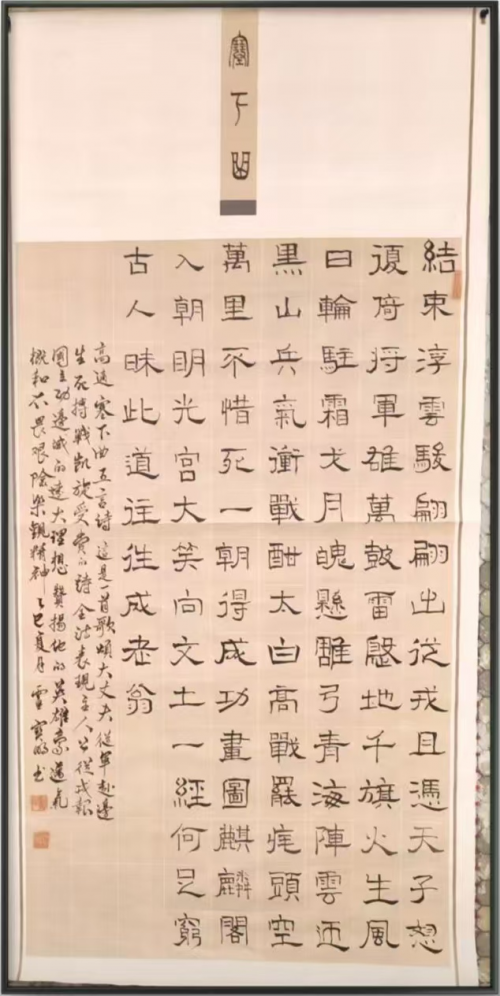 塞下曲
結束浮雲駿翩翩出從戎且憑天子怒
復倚將軍雄萬鼓雷殷地千旗火生風
日輪駐霜戈月魄懸雕弓青海陣雲匝
黑山兵氣衝戰酣太白高戰罷旄頭空
萬里不惜死一朝得成功畫圖麒麟閣
入朝明光宮大笑向文士一經何足窮
古人昧此道往往成老翁
高适塞下曲五言詩 這是一首歌頌大丈夫從軍赴邊
生死搏戰凱旋受賞的詩 全詩表現主人公從戎報
國立功邊域的遠大理想 贊揚他的英雄豪邁氣
概和不畏艰險樂觀精神 乙巳夏月 雷寶书